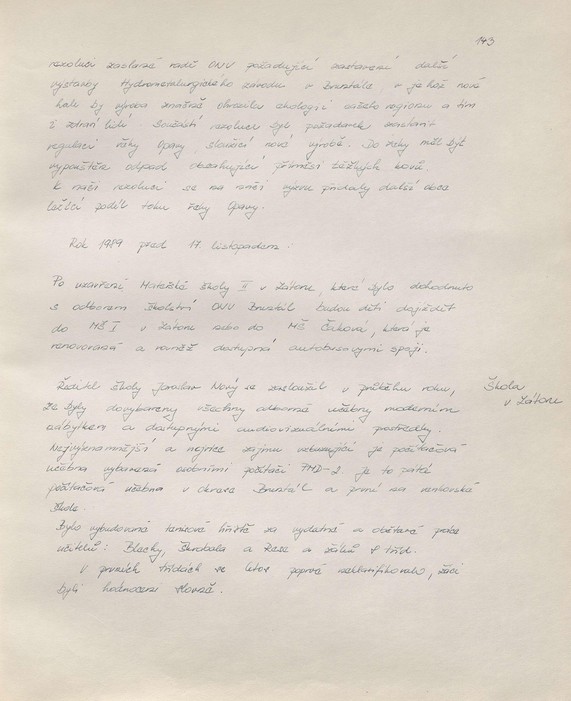 143
rezoluci zaslané radě ONV požadující zastavení další
výstavby Hydrometalurgického závodu v Bruntále, v jehož nové
hale by výroba značně ohrozila ekologii celého regionu a tím
i zdraví lidí. Součástí rezoluce byl požadavek zastavit
regulaci řeky Opavy, sloužící nové výrobě. Do řeky měl být
vypouštěn odpad obsahující příměsi těžkých kovů.
K naší rezoluci se na svém připojily další obce
ležící podél toku řeky Opavy.
Rok 1989 před 17. listopadem.
Po uzavření Mateřské školy II v Zátoru, které bylo dohodnuto
s odborem školství ONV Bruntál budou děti dojíždět
do MŠ I v Zátoru nebo do MŠ Čaková, která je
renovovaná a rovněž dostupná autobusovými spoji.
Škola
v Zátoru
Ředitel školy Jaroslav Nový se zasloužil v průběhu roku,
že byly dovybaveny všechny odborné učebny moderním
nábytkem a dostupnými audiovizuálními prostředky.
Nejvýznamnější a nejvíce zájmu vzbuzující je počítačová
učebna vybavená osobními počítači PMD-2. Je to pátá
počítačová učebna v okrese Bruntál a první na venkovské
škole.
Bylo vybudováno tenisové hřiště za vydatné a obětavé práce
učitelů: Blachy, Škrobala a a žáků 8 tříd.
V prvních třídách se letos poprvé neklasifikovalo, žáci
byli hodnoceni slovně.